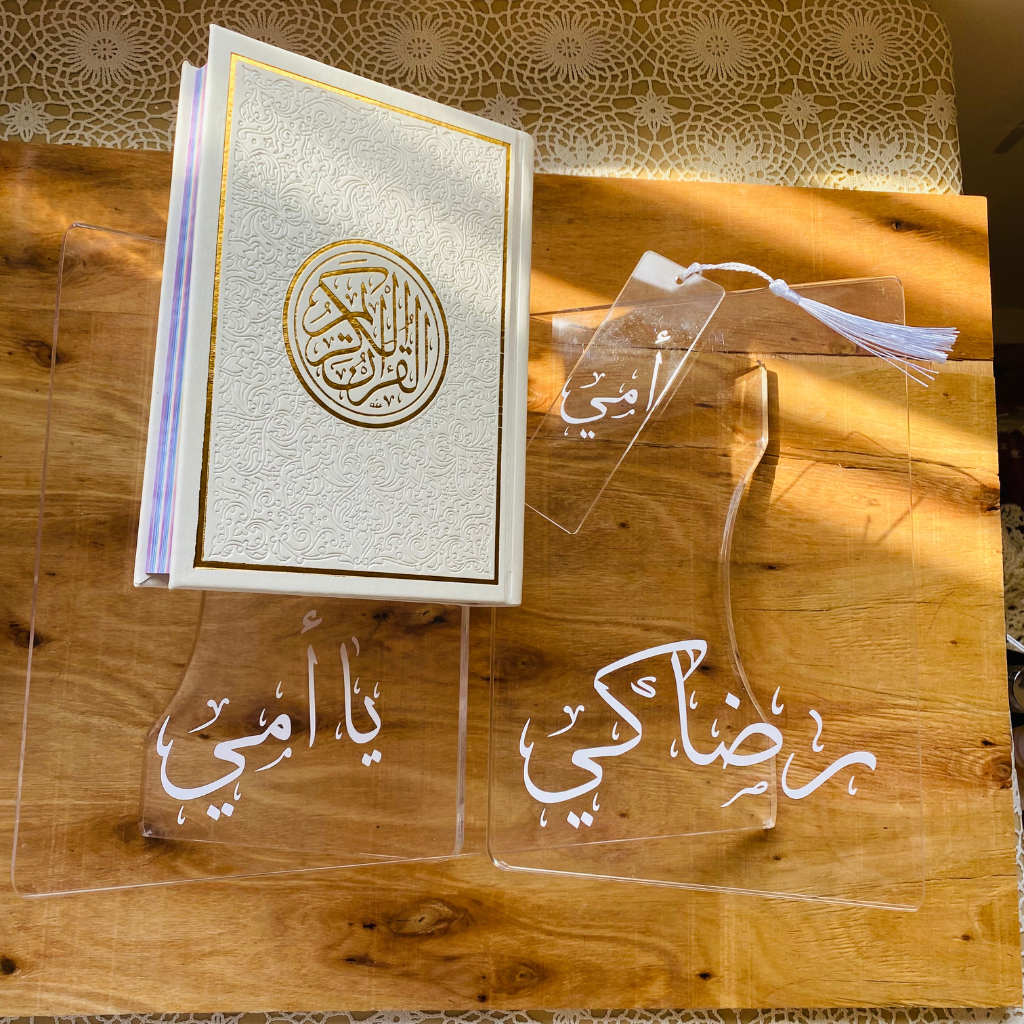 القرآن الكريم
أمي
رضاكي
يا أمي